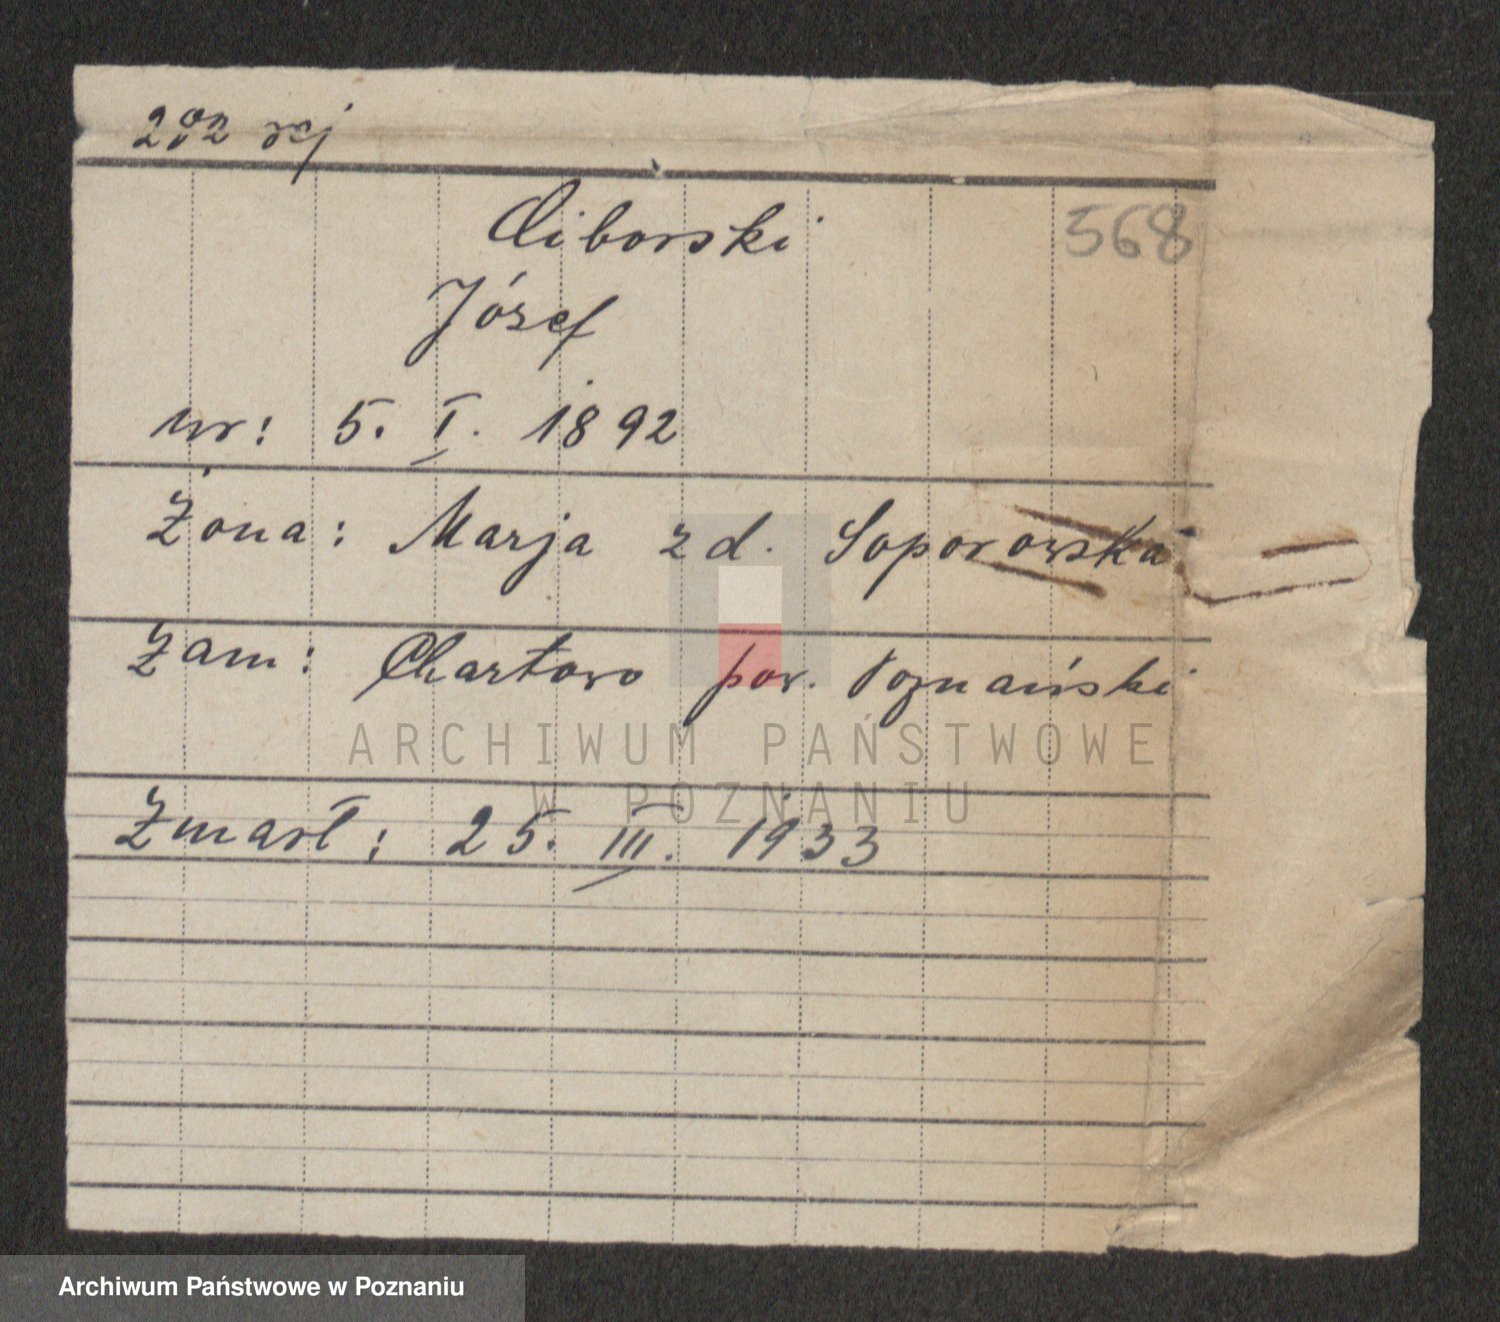 202 rej
Ciborski
568
Józef
ur: 5. I. 1892
Żona: Marja zd. Soporowska
Zam: Chartowo pow. Poznański
ARCHIWUM PAŃSTWOWE
W POZNANIU
Zmarł: 25. III. 1933
Archiwum Państwowe w Poznaniu